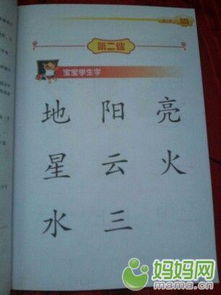 第二课
宝宝学生字
地 阳 亮
星 云 火
水 三
妈妈网
mama.cn